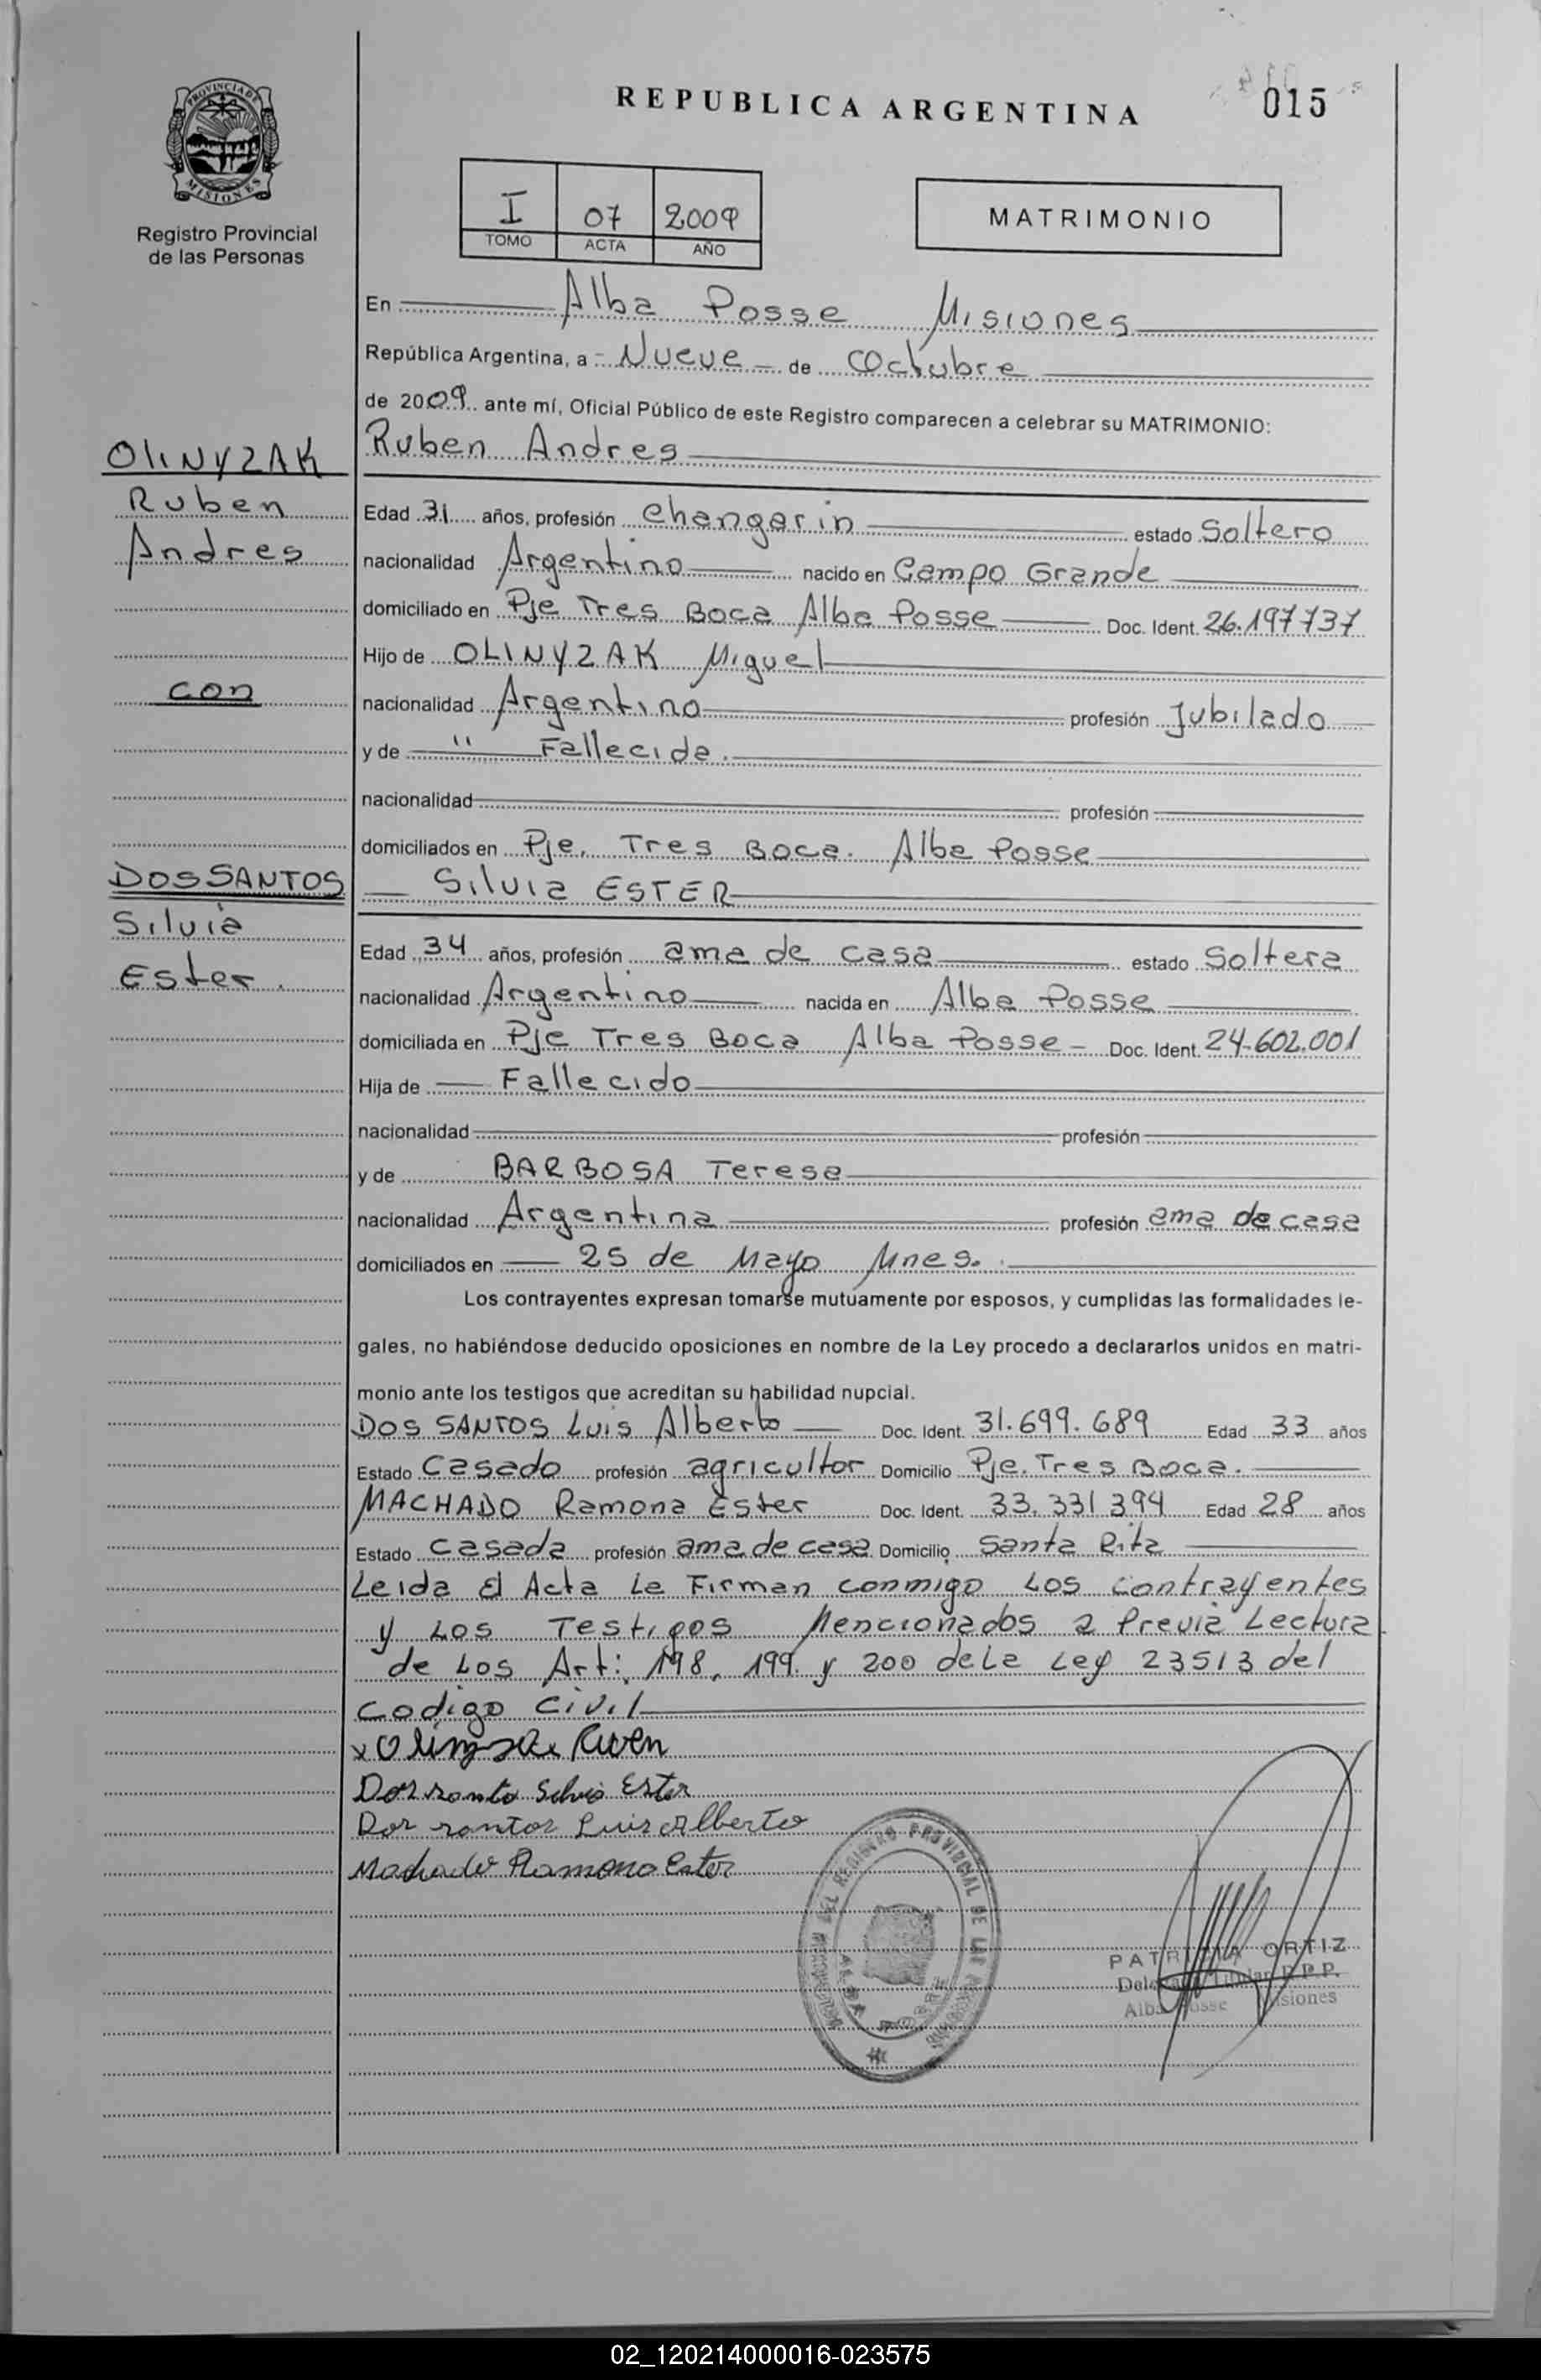 REPUBLICA ARGENTINA
015
PROVINCIA DE
MISIONES
Registro Provincial
de las Personas
I 07 2009
TOMO ACTA AÑO
MATRIMONIO
En Alba Posse Misiones
República Argentina, a - Nueve - de Octubre
de 2009 ante mí, Oficial Público de este Registro comparecen a celebrar su MATRIMONIO:
OLINYZAK
Ruben
Andres
con
DOS SANTOS
Silvia
Ester.
Ruben Andres
Edad 31 años, profesión changarin estado Soltero
nacionalidad Argentino nacido en Campo Grande
domiciliado en Pje Tres Boca Alba Posse Doc. Ident. 26.197737
Hijo de OLINYZAK Miguel
nacionalidad Argentino profesión Jubilado
y de " Fallecida.
nacionalidad profesión
domiciliados en Pje. Tres Boca. Alba Posse
Silvia ESTER
Edad 34 años, profesión ama de casa estado Soltera
nacionalidad Argentino nacida en Alba Posse
domiciliada en Pje Tres Boca Alba Posse - Doc. Ident. 24.602.001
Hija de Fallecido
nacionalidad profesión
y de BARBOSA Teresa
nacionalidad Argentina profesión ama de casa
domiciliados en 25 de Mayo Mnes.
Los contrayentes expresan tomarse mutuamente por esposos, y cumplidas las formalidades le-
gales, no habiéndose deducido oposiciones en nombre de la Ley procedo a declararlos unidos en matri-
monio ante los testigos que acreditan su habilidad nupcial.
DOS SANTOS Luis Alberto Doc. Ident. 31.699.689 Edad 33 años
Estado Casado profesión agricultor Domicilio Pje. Tres Boca.
MACHADO Ramona Ester Doc. Ident. 33.331394 Edad 28 años
Estado Casada profesión ama de casa Domicilio Santa Rita
Leida El Acta La Firman conmigo Los contrayentes
y Los Testigos Mencionados a Previa Lectura
de Los Art: 198, 199 y 200 de La Ley 23513 del
Codigo Civil
x Ruven
Dos santo Silvia Ester
Dos santos Luis Alberto
Machado Ramona Ester
DEL REGISTRO PROVINCIAL DE LAS
ALBA POSSE
PATRICIA ORTIZ
Delegada Titular R.P.P.
Alba Posse Misiones
02_120214000016-023575